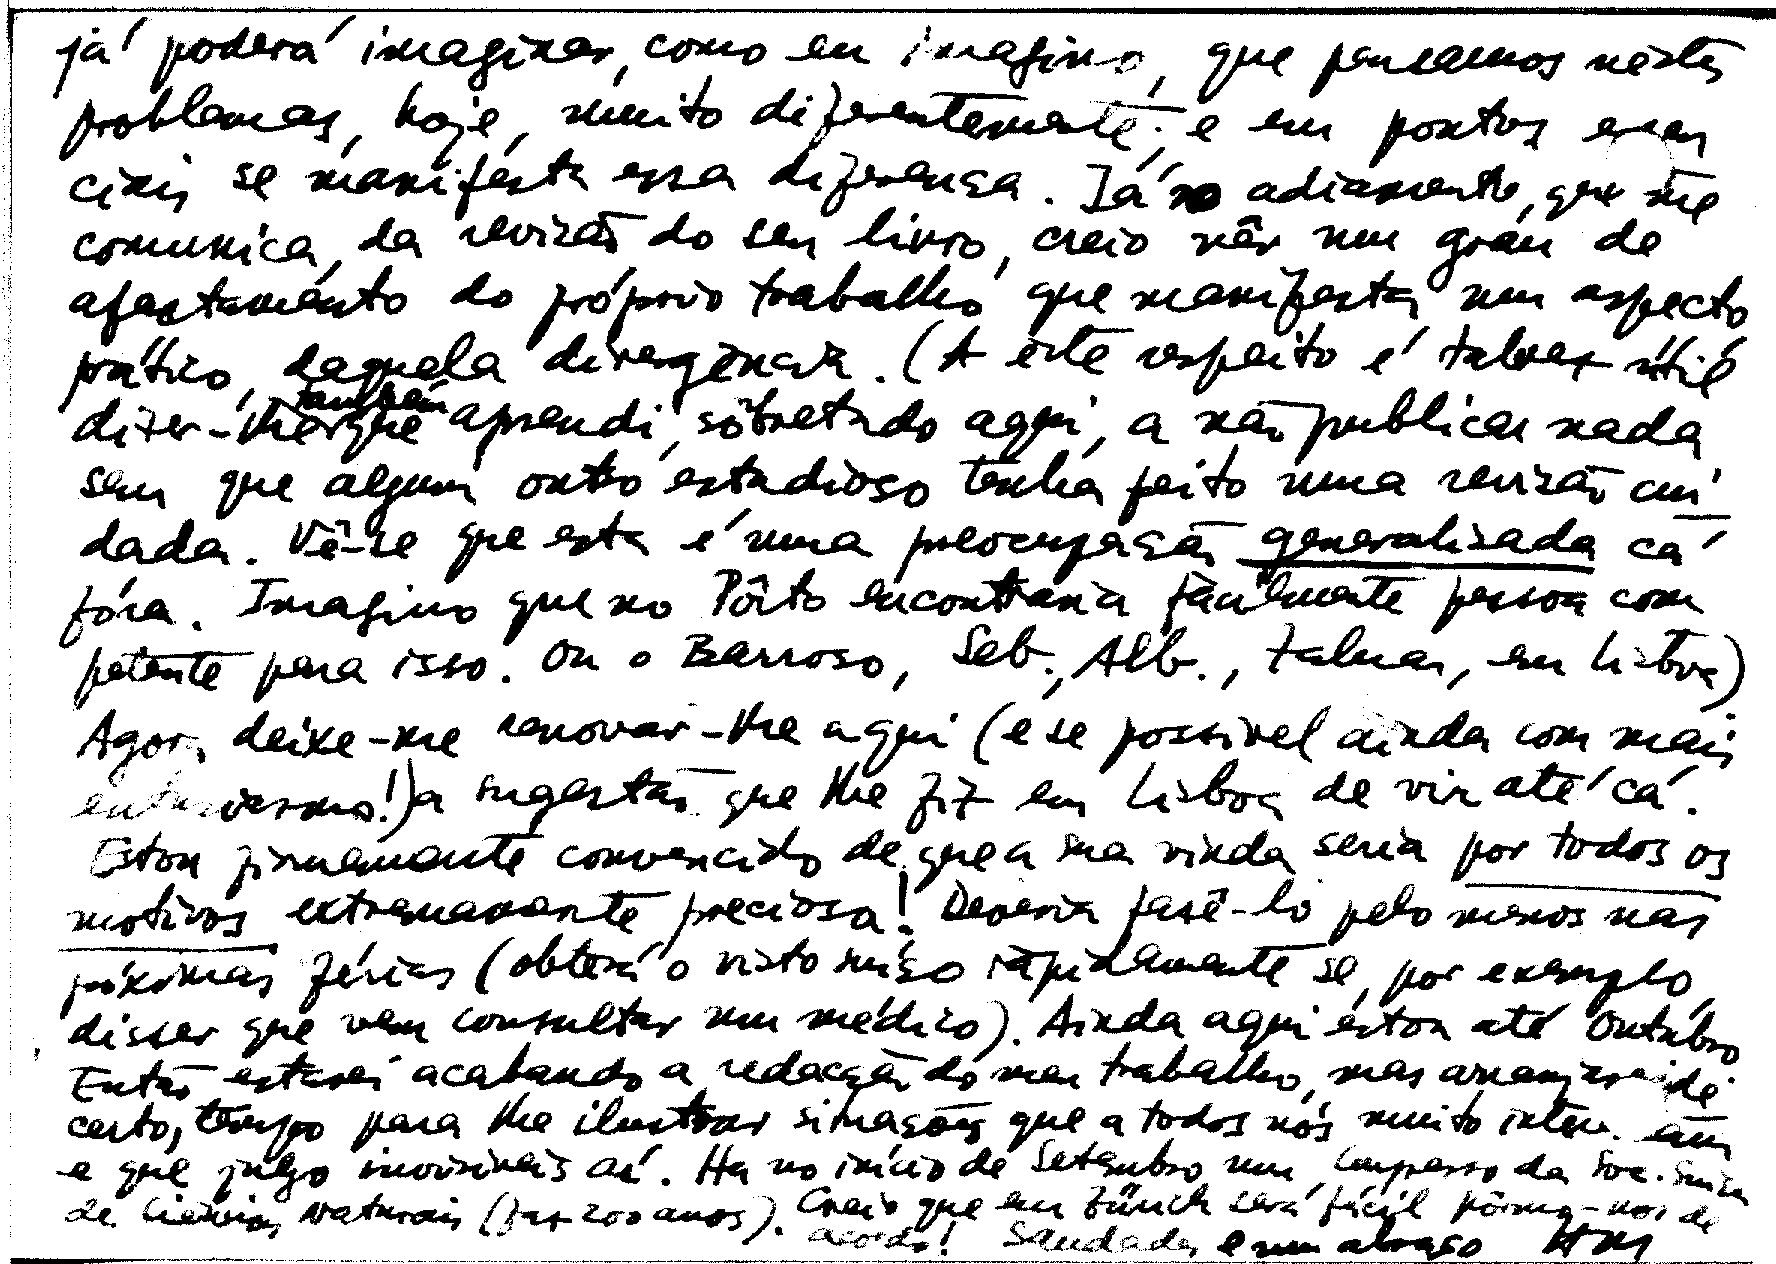 já poderá imaginar, como eu imagino, que pensamos nestes
problemas, hoje, muito diferentemente; e em pontos essen
ciais se manifesta essa diferença. Já no adiamento, que me
comunica, da revisão do seu livro, creio vêr um grau de
afastamento do próprio trabalho que manifesta um aspecto
prático, daquela divergência. (A êste respeito é talvez útil
dizer-lhe que também aprendi, sôbretudo aqui, a não publicar nada
sem que algum outro estudioso tenha feito uma revisão cui
dada. Vê-se que esta é uma preocupação generalizada cá
fóra. Imagino que no Pôrto encontraria fàcilmente pessoa com
petente para isso. Ou o Barroso, Seb., Alb., Zaluar, em Lisboa)
Agora deixe-me renovar-lhe aqui (e se possivel ainda com mais
entusiasmo!) a sugestão que lhe fiz em Lisboa de vir até cá.
Estou firmemente convencido de que a sua vinda seria por todos os
motivos extremamente preciosa! Deveria fazê-lo pelo menos nas
próximas férias (obterá o visto suíço rapidamente se, por exemplo,
disser que vem consultar um médico). Ainda aqui estou até Outubro
Então estarei acabando a redacção do meu trabalho, mas arranjarei de
certo, tempo para lhe ilustrar situações que a todos nós muito
e que julgo invisiveis aí. Ha no início de Setembro um Congresso da Soc. Suiça
de Ciências Naturais (faz 200 anos). Creio que em Zürich será fácil pôrmo-nos de
acordo! Saudades e um abraço HM